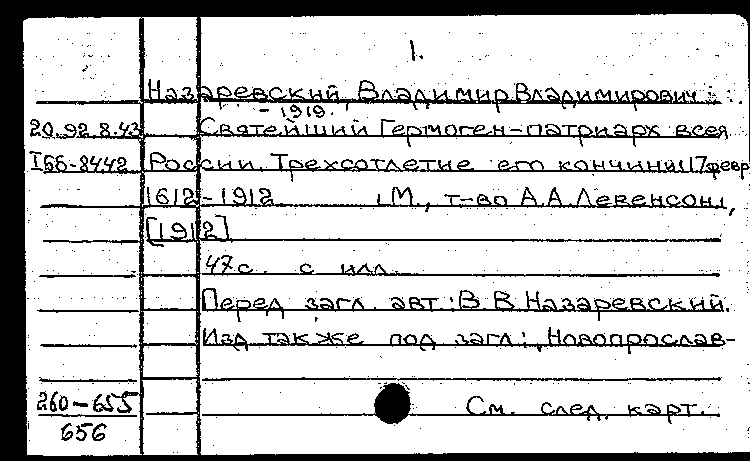 1.
Назаревский, Владимир Владимирович
- 1919.
20.92.8.43 Святейший Гермоген-патриарх всея
I 66-8442 России. Трехсотлетие его кончины 17 февр
1612-1912 М., т-во А.А.Левенсон,
[1912]
47с. с илл.
Перед загл. авт.: В.В.Назаревский.
Изд также под загл.: Новопрослав-
260-655 См. след. карт.
656